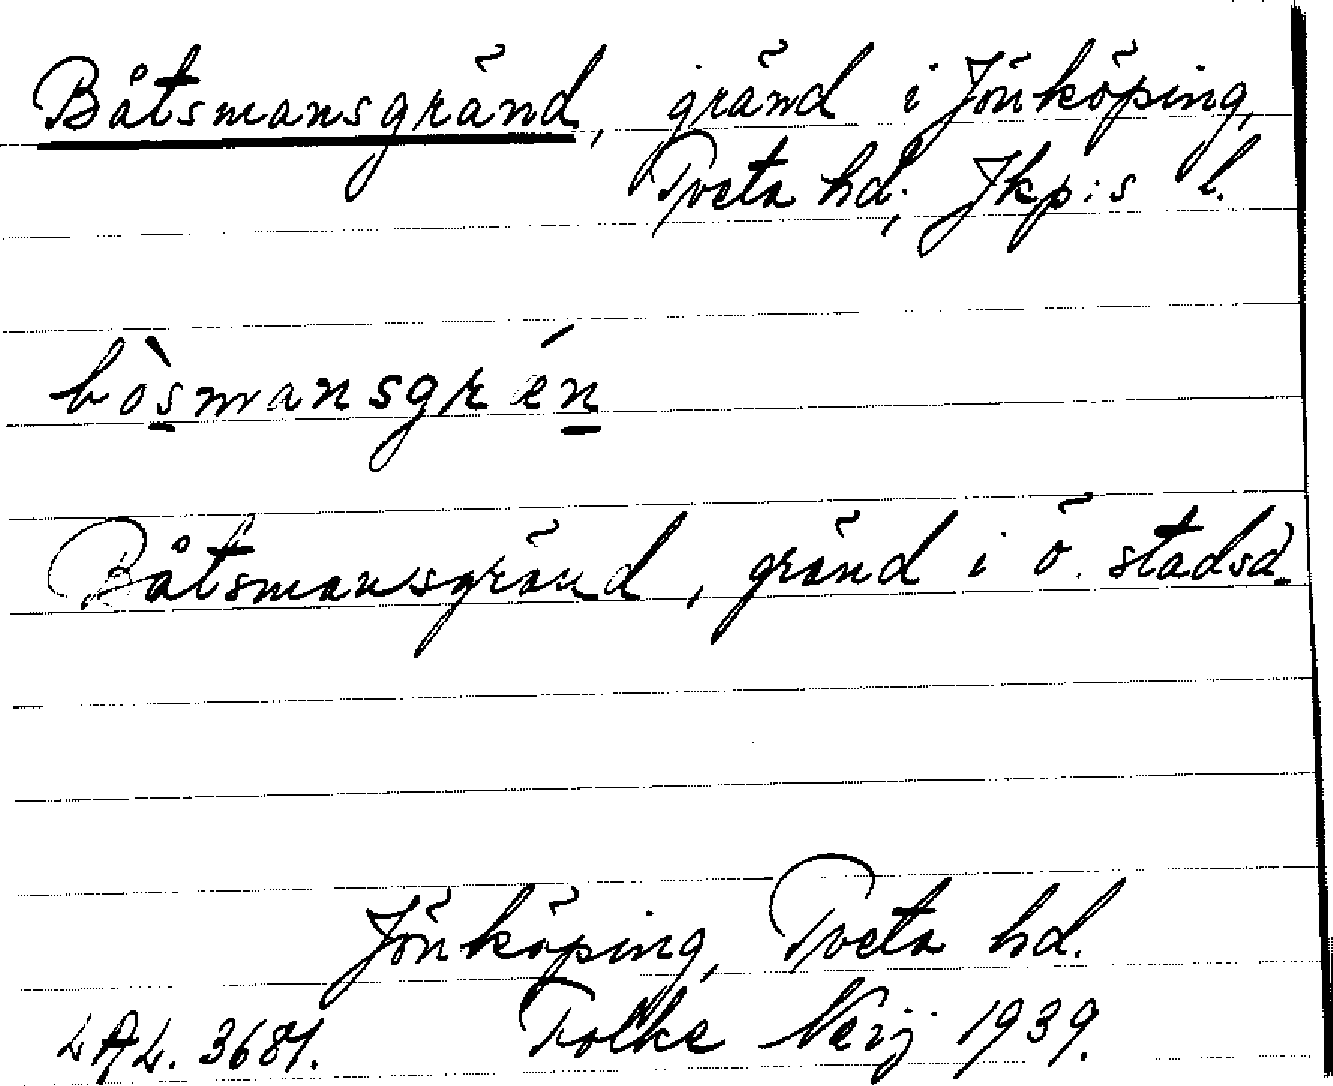 Båtsmansgränd, gränd i Jönköping,
Tveta hd; Jkp:s l.
bòsmansgrǽn
Båtsmansgränd, gränd i ö. stadsd.
Jönköping, Tveta hd.
Folke Neij 1939.
LAL. 3681.